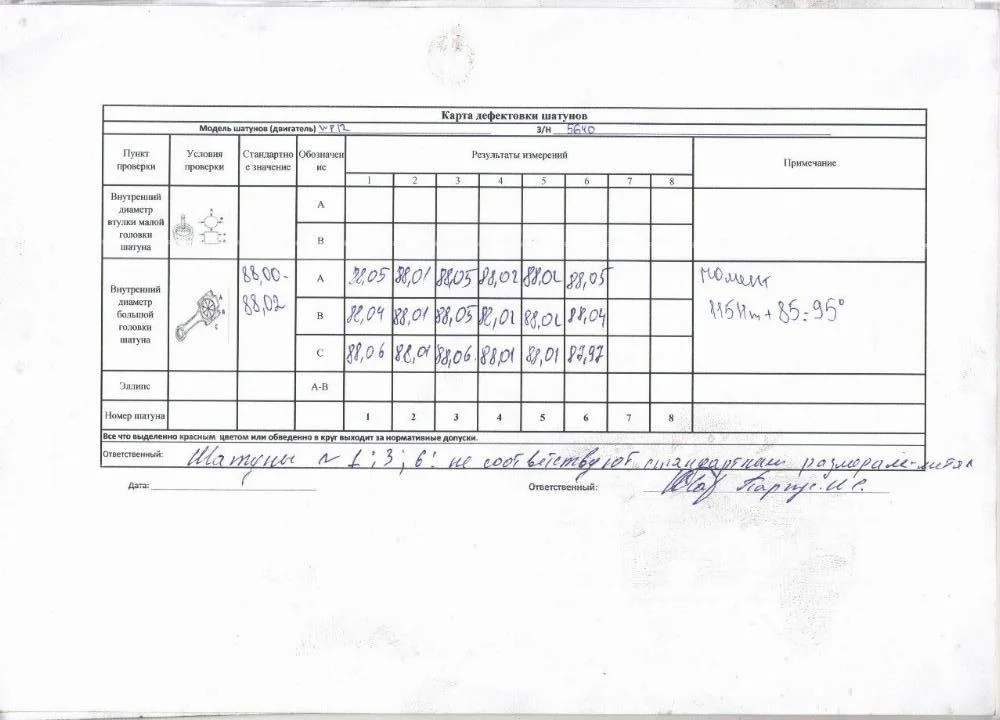 Карта дефектовки шатунов
Модель шатунов (двигатель) WP12 З/Н 5640
Пункт проверки Условия проверки Стандартно е значение Обозначен ие Результаты измерений Примечание
1 2 3 4 5 6 7 8
Внутренний диаметр втулки малой головки шатуна
А
В
Внутренний диаметр большой головки шатуна
88,00-
88,02
А 88,01 88,05 88,02 88,02 88,05
В 88,01 88,05 88,02 88,04
С 88,06 88,01 88,06 88,01 88,01 87,97
момент
115Нm + 85-95°
Эллипс А-В
Номер шатуна 1 2 3 4 5 6 7 8
Все что выделенно красным цветом или обведенно в круг выходит за нормативные допуски.
Ответственный: Шатуны № 1; 3; 6: не соответствуют стандартным размерам
Дата: Ответственный: